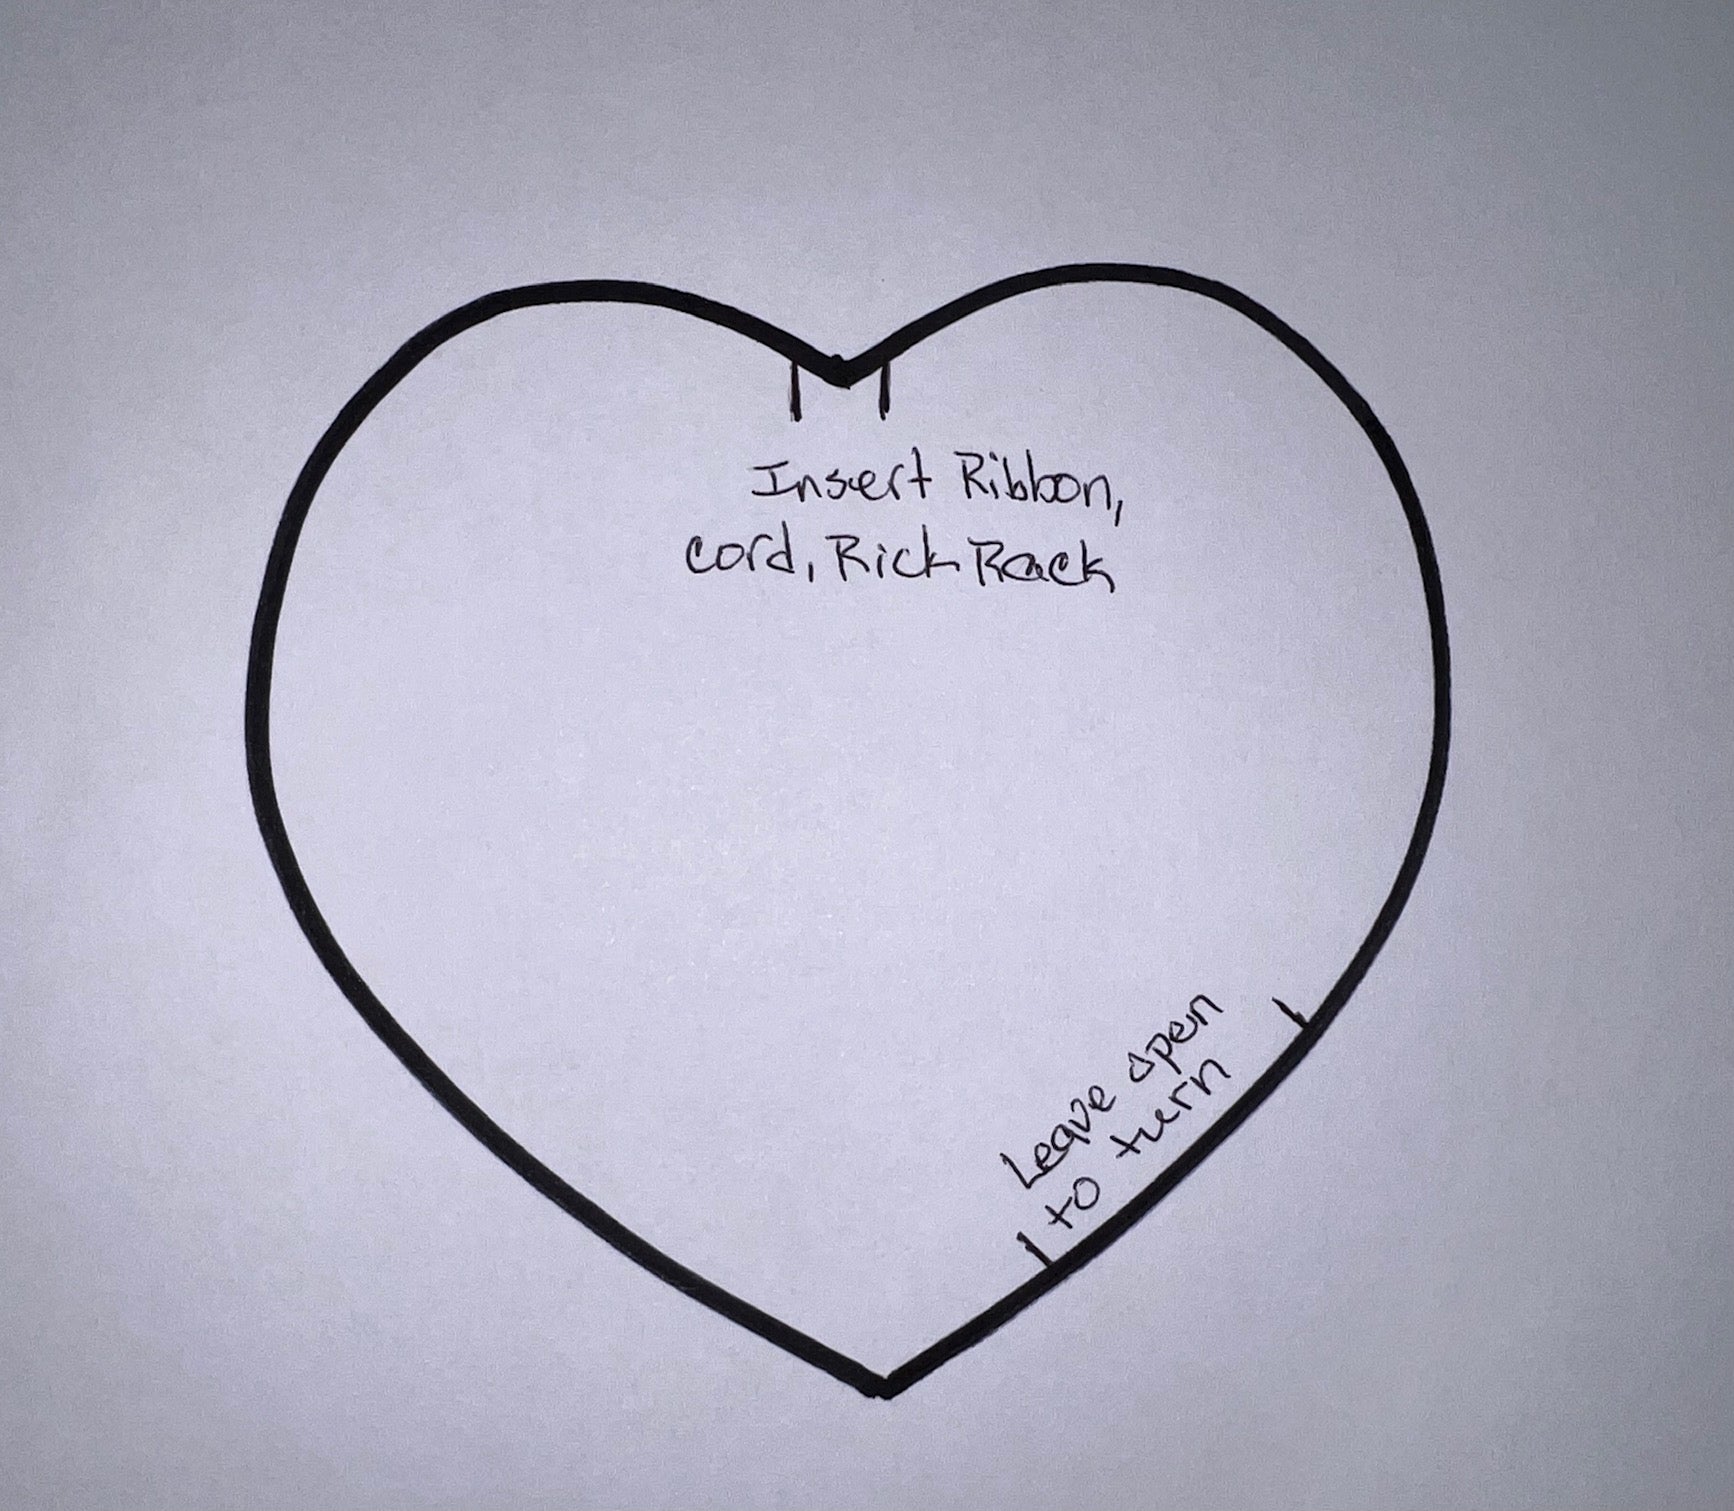 Insert Ribbon,
cord, Rick Rack
Leave open
to turn